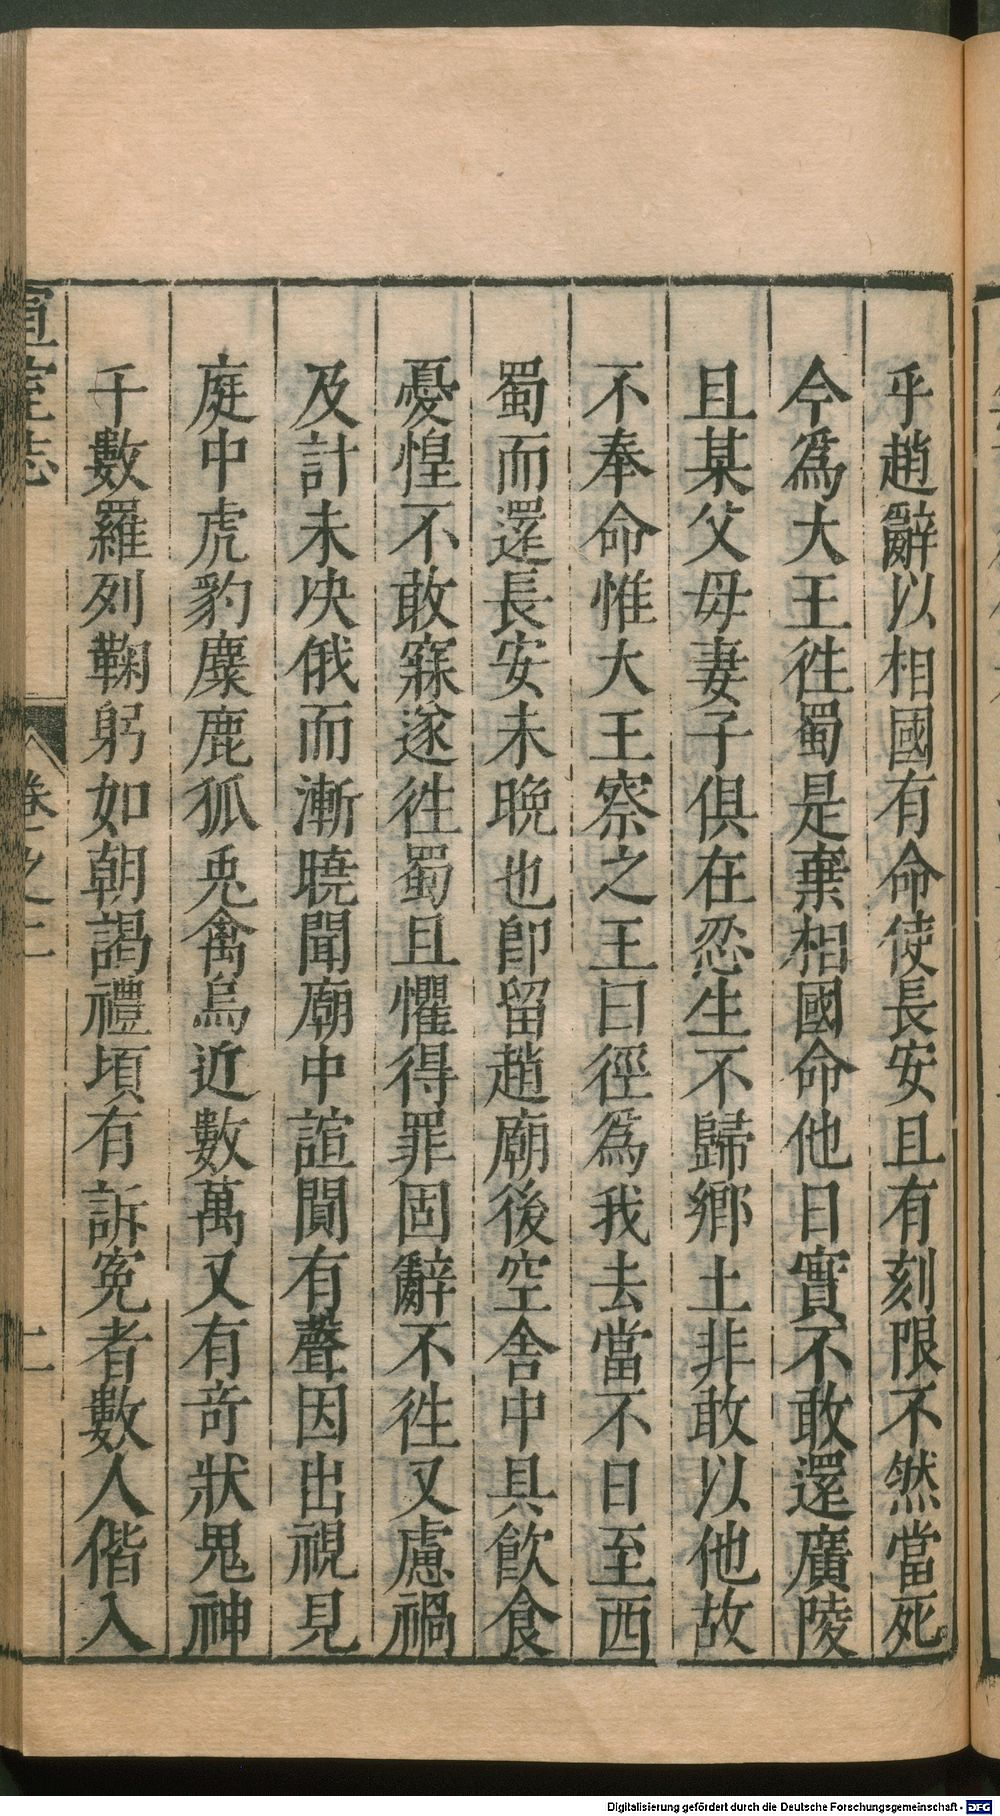 乎趙辭以相國有命使長安且有刻限不然當死
今爲大王徃蜀是棄相國命他日實不敢還廣陵
且某父母妻子俱在忍生不歸鄉土非敢以他故
不奉命惟大王察之王曰徑爲我去當不日至西
蜀而還長安未晚也卽留趙廟後空舍中具飲食
憂惶不敢寐遂徃蜀且懼得罪固辭不徃又慮禍
及計未決俄而漸曉聞廟中諠閧有聲因出視見
庭中虎豹麋鹿狐兎禽鳥近數萬又有奇狀鬼神
千數羅列鞠躬如朝謁禮頃有訴寃者數人偕入
宣室志
卷之
Digitalisierung gefördert durch die Deutsche Forschungsgemeinschaft - DFG